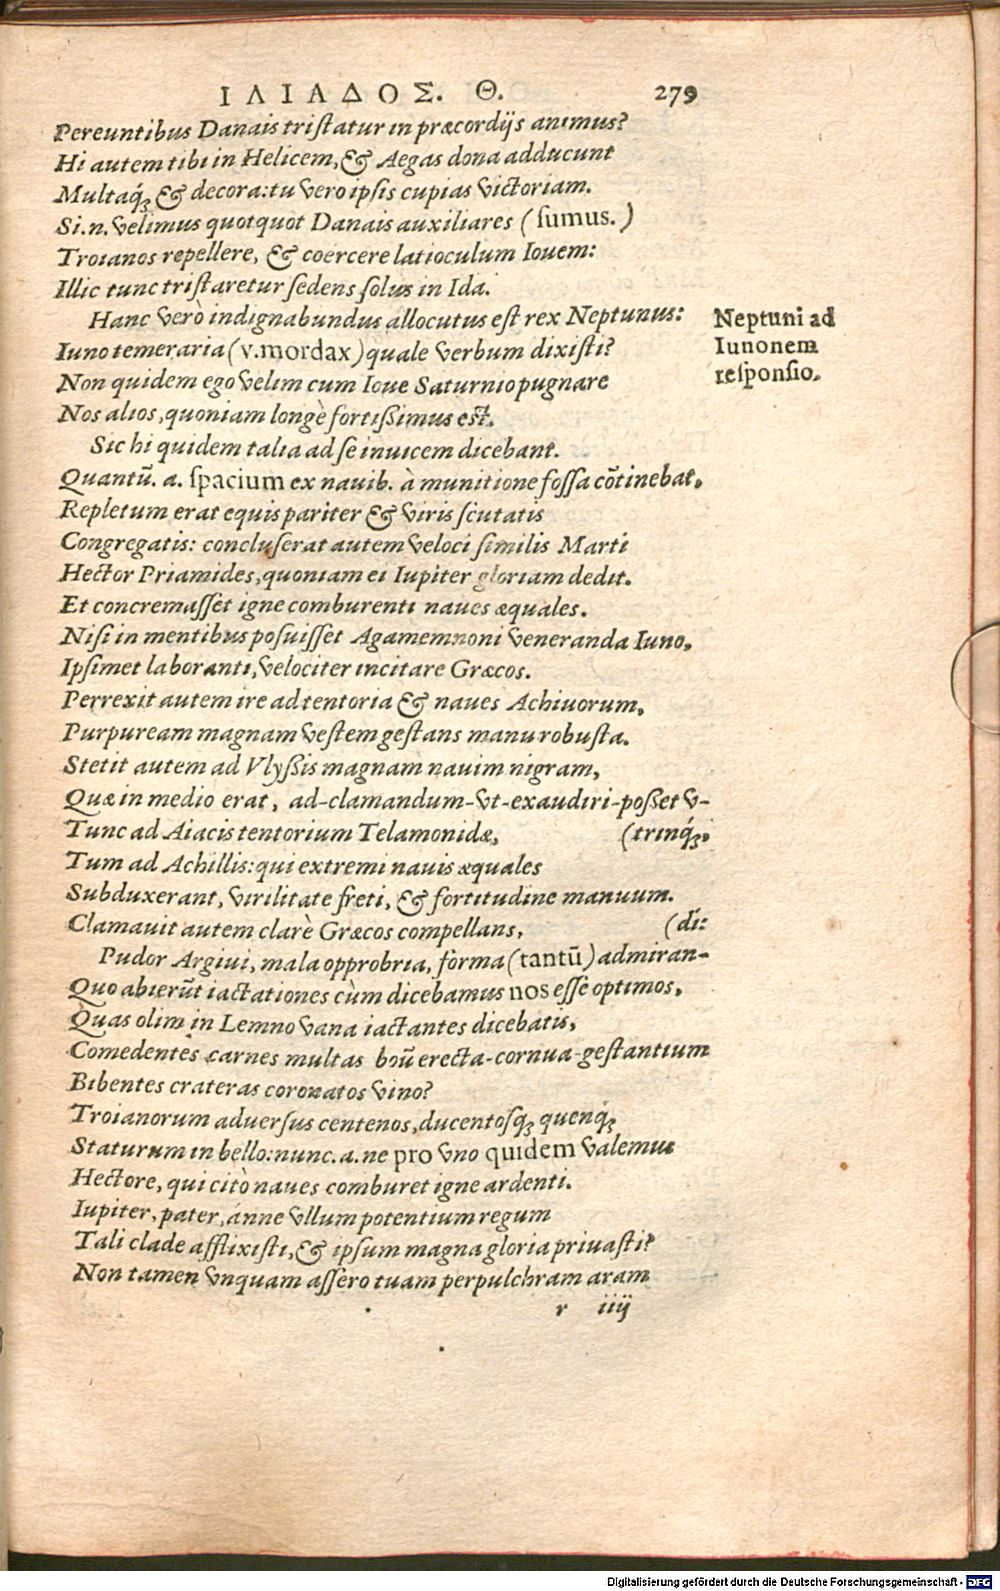 ΙΛΙΑΔΟΣ. Θ. 279
Pereuntibus Danais tristatur in præcordijs animus?
Hi autem tibi in Helicem, & Aegas dona adducunt
Multaq́; & decora: tu vero ipsis cupias victoriam.
Si.n. velimus quotquot Danais auxiliares (sumus.)
Troianos repellere, & coercere latioculum Iovem:
Illic tunc tristaretur sedens solus in Ida.
Hanc verò indignabundus allocutus est rex Neptunus:
Neptuni ad
Iunonem
responsio.
Iuno temeraria (v.mordax) quale verbum dixisti?
Non quidem ego velim cum Ioue Saturnio pugnare
Nos alios, quoniam longè fortißimus est.
Sic hi quidem talia ad se inuicem dicebant.
Quantū. a. spacium ex navib. à munitione fossa cōtinebat,
Repletum erat equis pariter & viris scutatis
Congregatis: concluserat autem veloci similis Marti
Hector Priamides, quoniam ei Iupiter gloriam dedit.
Et concremasset igne comburenti naues æquales.
Nisi in mentibus posuisset Agamemnoni veneranda Iuno,
Ipsimet laboranti, velociter incitare Græcos.
Perrexit autem ire ad tentoria & naues Achiuorum,
Purpuream magnam vestem gestans manu robusta.
Stetit autem ad Vlyßis magnam nauim nigram,
Quæ in medio erat, ad-clamandum-vt-exaudiri-posset v-
Tunc ad Aiacis tentorium Telamonidæ, (trinq́;
Tum ad Achillis: qui extremi nauis æquales
Subduxerant, virilitate freti, & fortitudine manuum.
Clamauit autem clarè Græcos compellans, (di:
Pudor Argiui, mala opprobria, forma (tantū) admiran-
Quo abierūt iactationes cùm dicebamus nos esse optimos,
Quas olim in Lemno vana iactantes dicebatis,
Comedentes carnes multas boū erecta-cornua-gestantium
Bibentes crateras coronatos vino?
Troianorum adversus centenos, ducentosq́; quenq́;
Staturum in bello: nunc. a. ne pro vno quidem valemus
Hectore, qui citò naues comburet igne ardenti.
Iupiter, pater, ánne vllum potentium regum
Tali clade afflixisti, & ipsum magna gloria priuasti?
Non tamen vnquam assero tuam perpulchram aram
r iiij
Digitalisierung gefördert durch die Deutsche Forschungsgemeinschaft - DFG